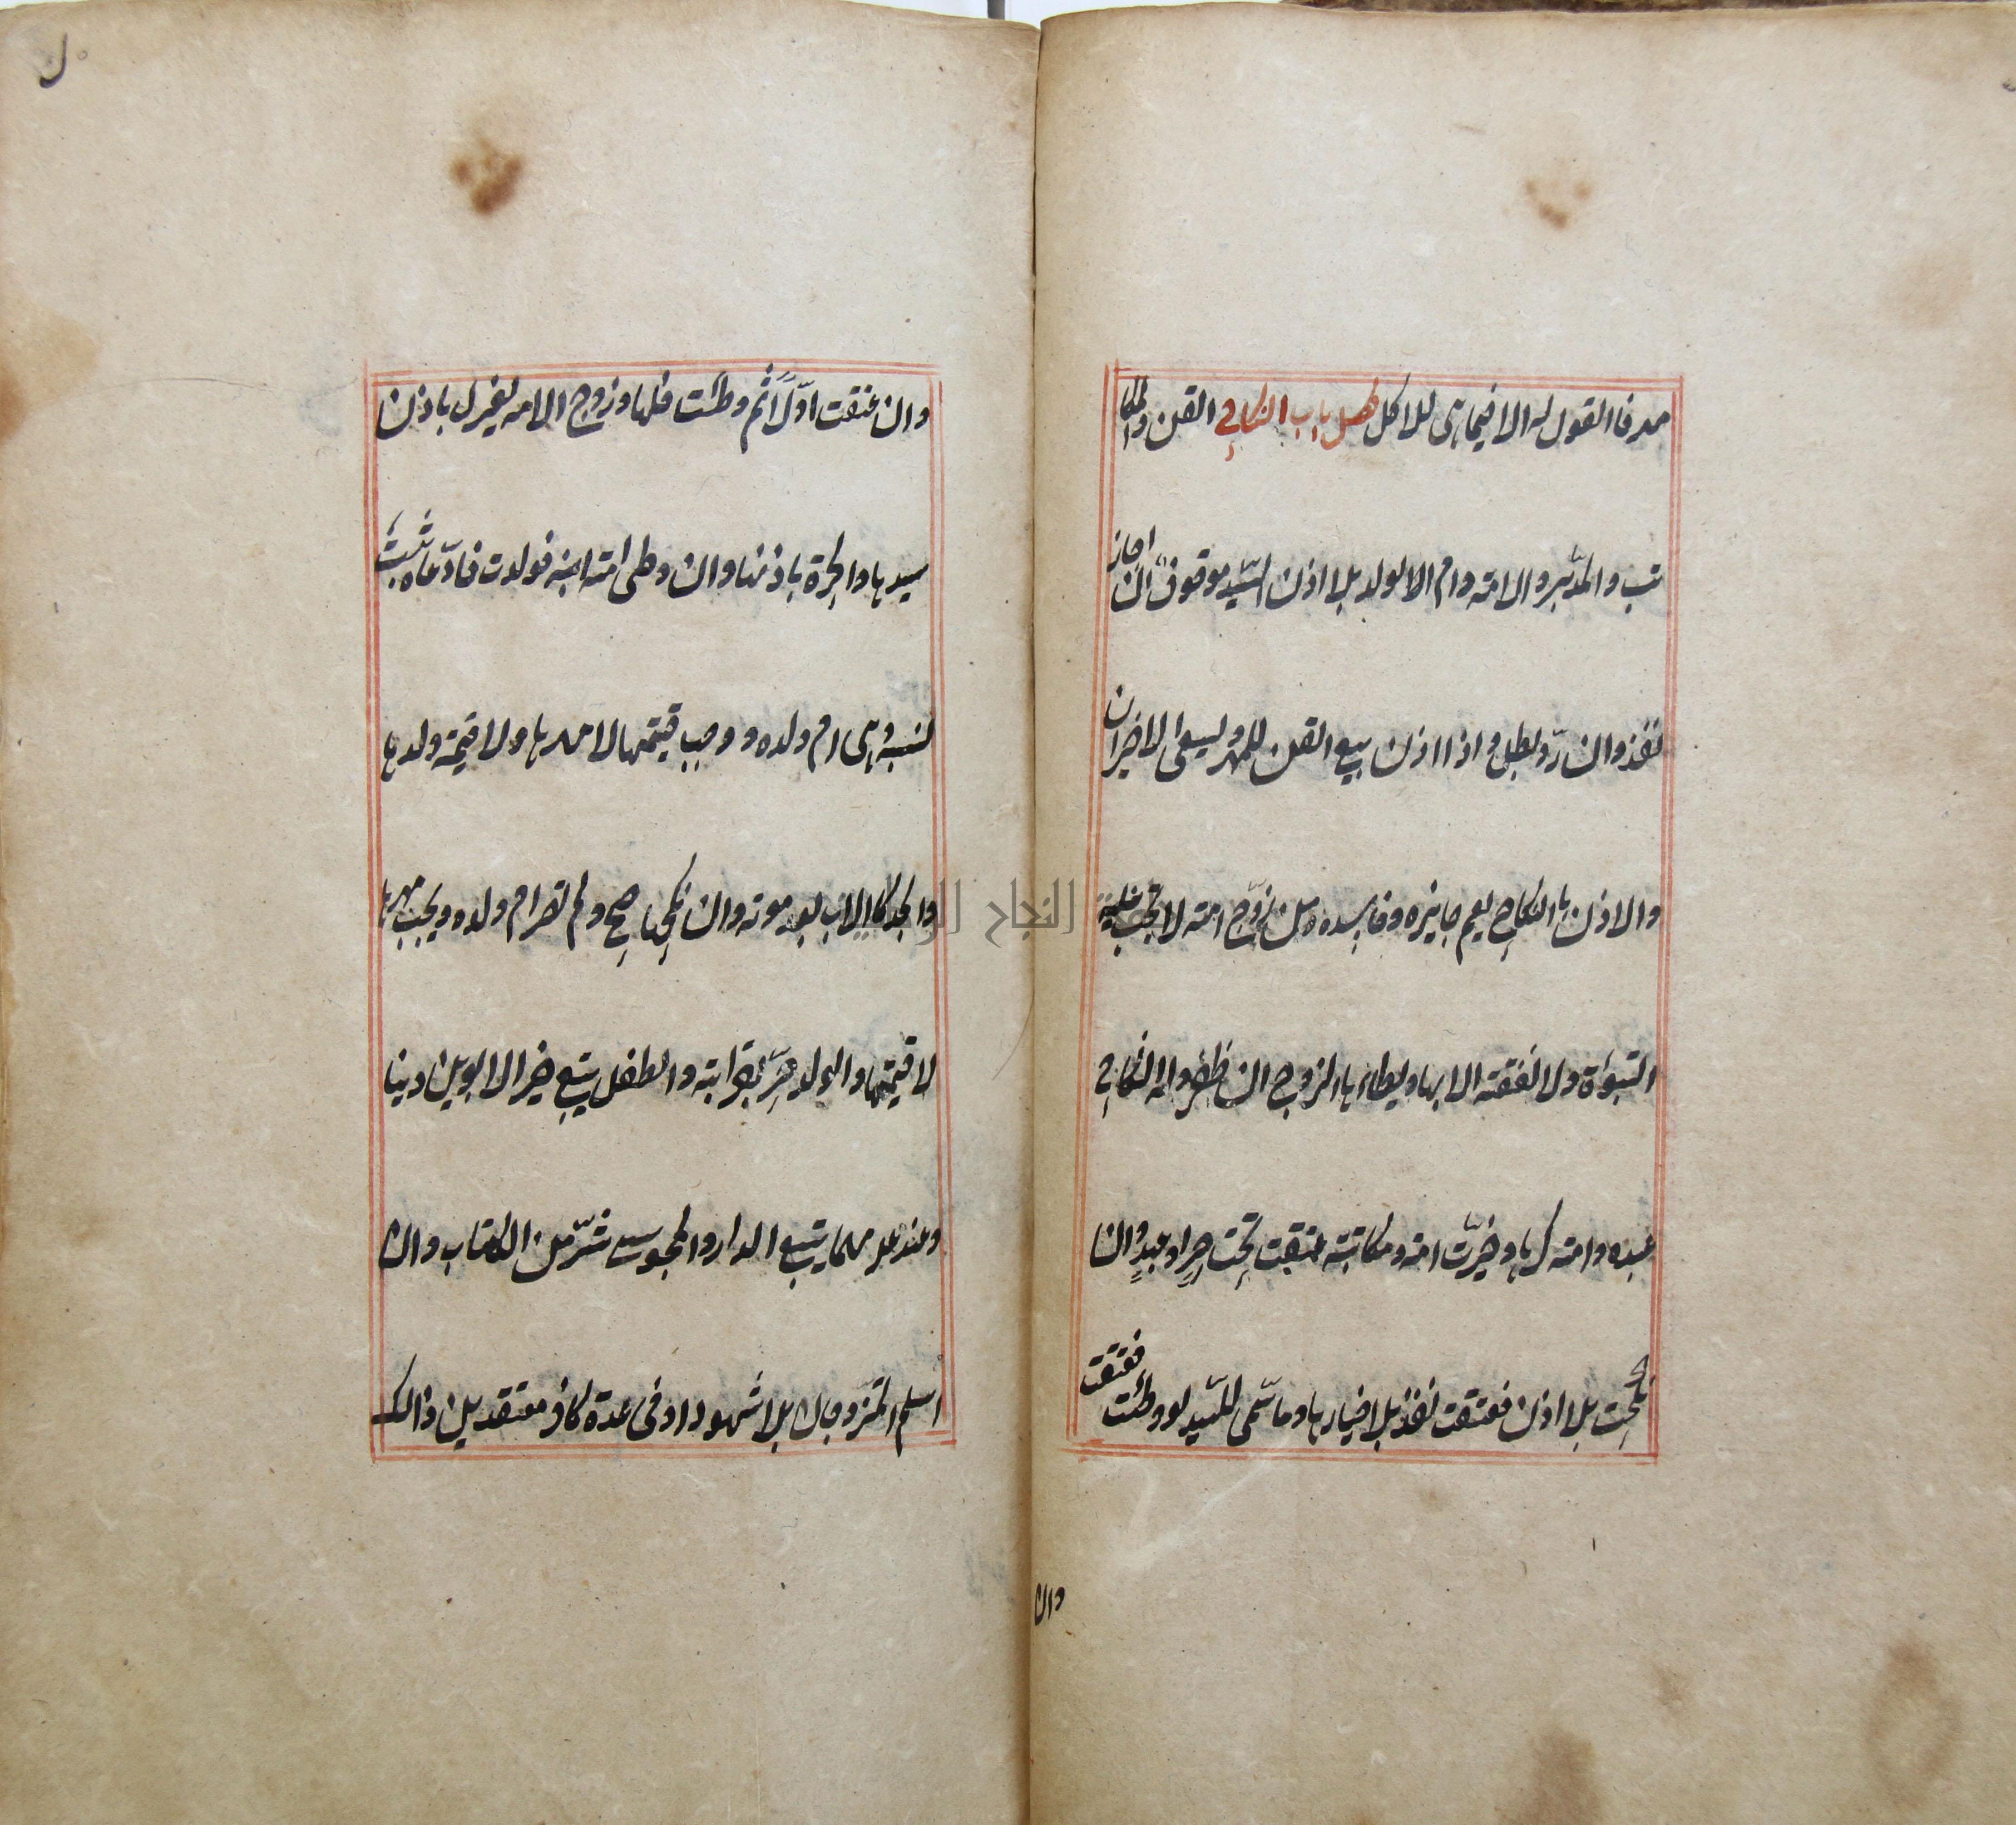 مهرفا القول له الا فيما هى للاكل فصل باب النكاح القن والمكا
تب والمدبر والامة وام الالولد بلا اذن السّيد موقوف ان اجاز
نفذ وان ردّ بطل واذا اذن بيع القن للمهر ويسعى الاخيران
والاذن بالنكاح يعم جايزه وفاسده ومن زوّج امته لا تجب عليه
التبوّاة ولا نفقته الا بها ويطاءها الزوج ان ظفر وله انكاح
عبده وامته كرها وخيّرت امة ومكاتبة عتقت تحت حرٍ او عبدٍ وان
نكحت بلا اذن فعتقت نفذ بلا خيارها وما سمّى للسّيد لو وطئت فعتقت
وان
وان عتقت اوّلاً ثم وطئت فلها وزوج الامة يعزل باذن
سيدها والحرة باذنها وان وطى امته ابنه فولدت فادّعاه ثبت
نسبه وهى ام ولده ووجب قيمتها لا مهرها ولا قيمة ولدها
والجد كالاب بعد موته وان نكحها صح ولم تصر ام ولده ويجب مهرها
لا قيمتها والولد حرّ بقرابته والطفل يتبع خير الابوين دينا
وعند عدمهما يتبع الدار والمجوسى شرّ من الكتاب وان
اسلم المتزوجان بلا شهود او فى عدة كافر معتقدين ذالك